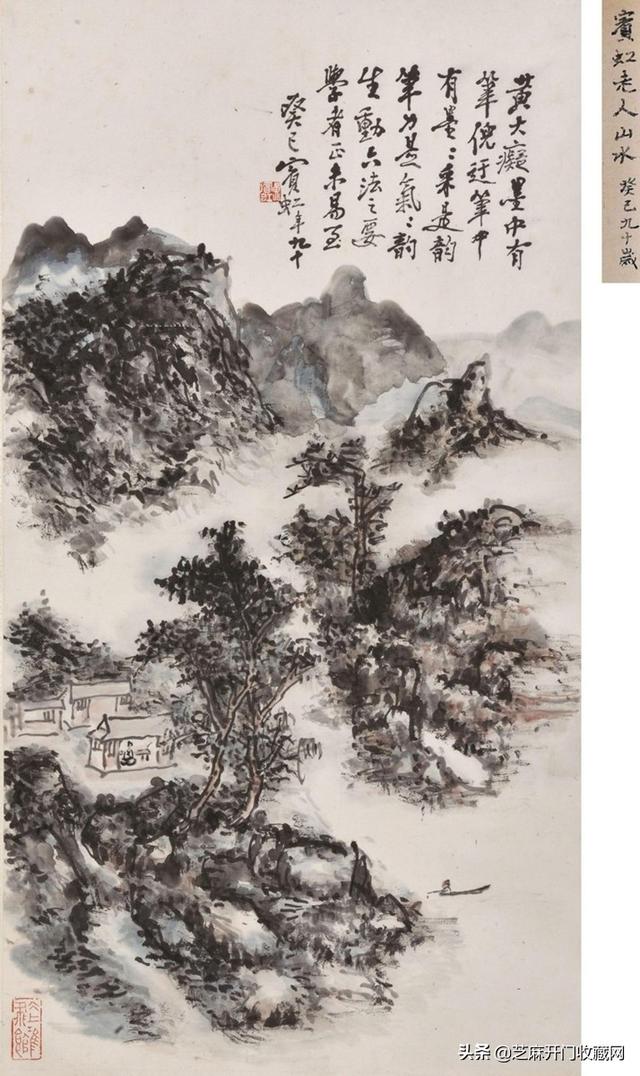 賓虹老人山水 癸巳九十歲
黄大癡墨中有
筆倪迂筆中
有墨〻采是韵
筆力是氣〻韵
生動六法之要
學者正未易至
癸巳賓虹年九十
头条 @芝麻开门收藏网